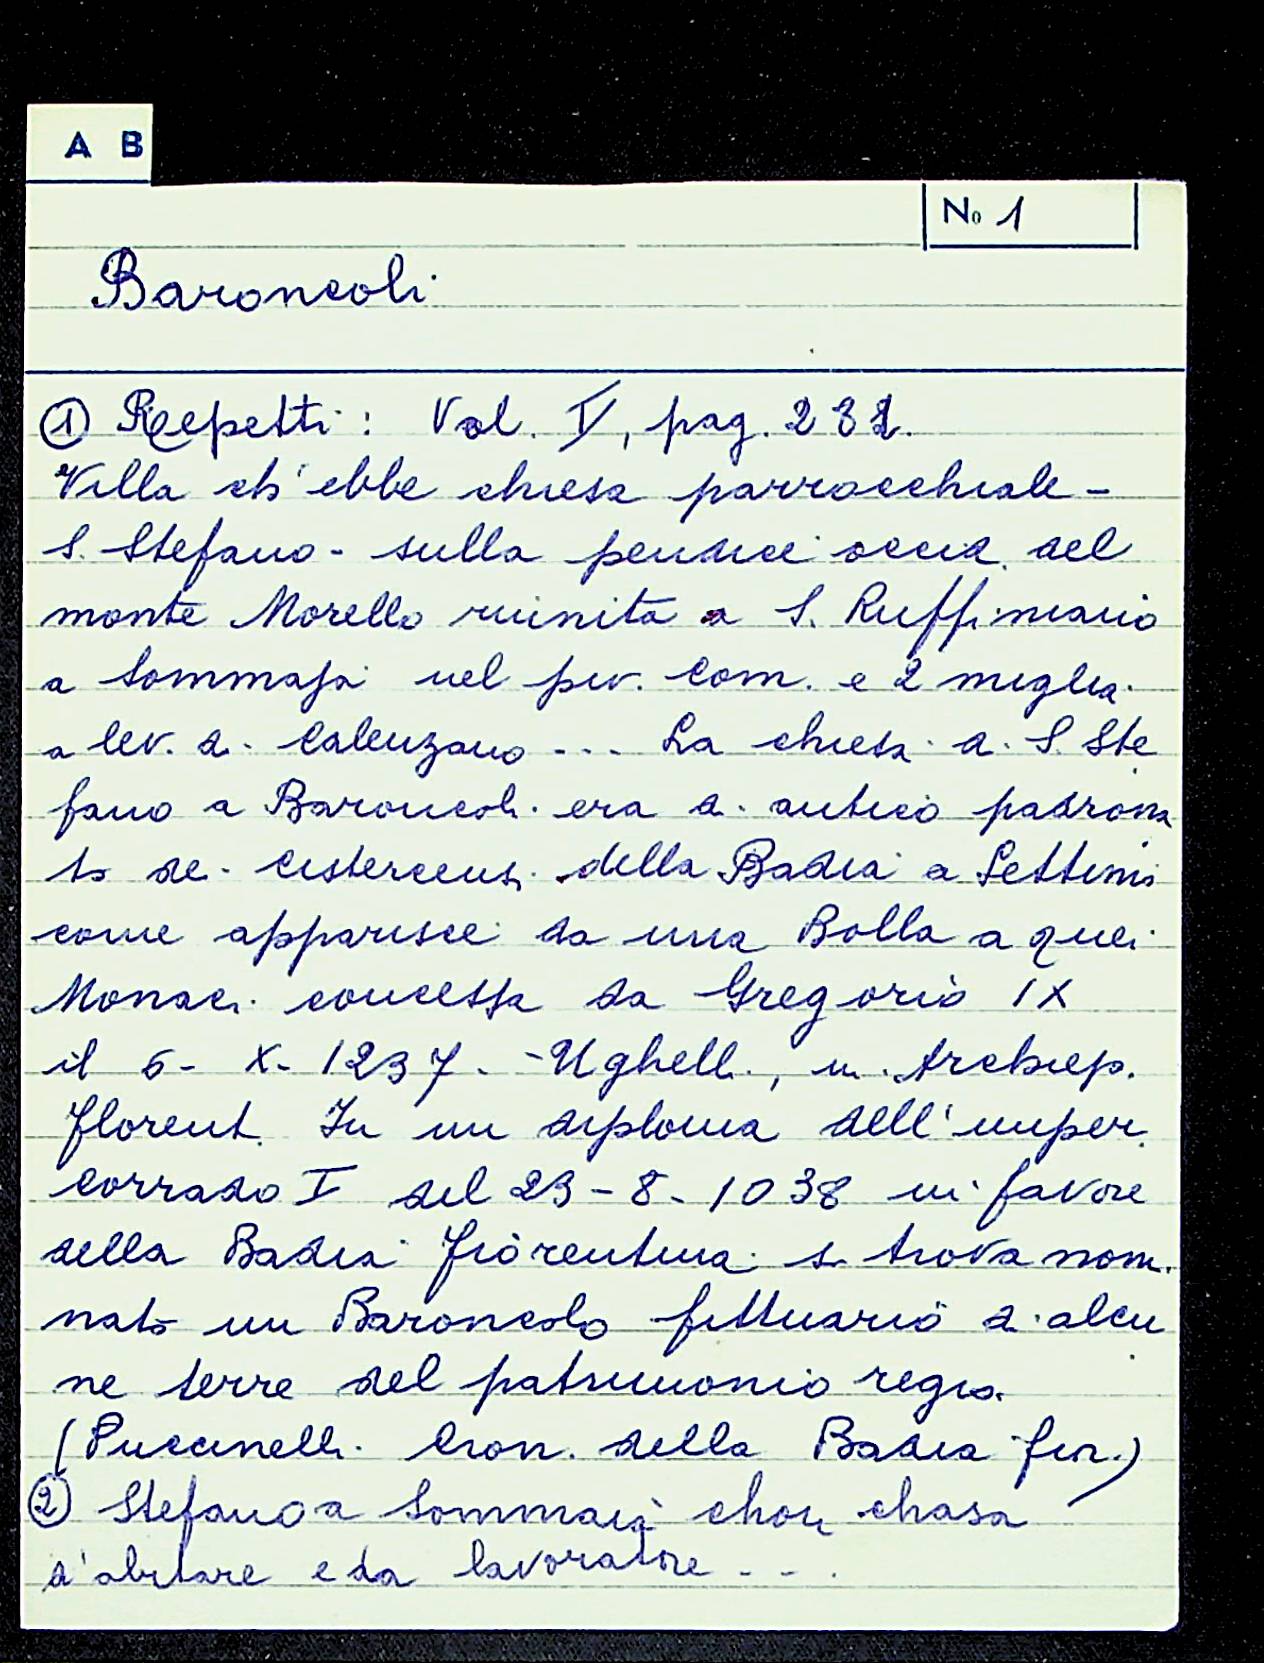 A B
No 1
Baroncoli
① Repetti: Vol. V, pag. 232.
Villa ch'ebbe chiesa parrocchiale -
S. Stefano - sulla pendice occid. del
monte Morello riunita a S. Ruffiniano
a Sommaja nel piv. Com. e 2 miglia
a lev. di Calenzano ... La chiesa di S. Ste
fano a Baroncoli era di antico padrona
to dei Cistercensi della Badia a Settimo
come apparisce da una Bolla a quei
Monaci concessa da Gregorio IX
il 6 - X - 1237. - Ughelli, in Archiep.
Florent. In un diploma dell'imper.
Corrado I del 23 - 8 - 1038 in favore
della Badia Fiorentina si trova nomi
nato un Baroncolo fittuario di alcu
ne terre del patrimonio regio.
(Puccinelli. Cron. della Badia fior.)
② Stefano a Sommaia chon chasa
d'abitare e da lavoratore ...